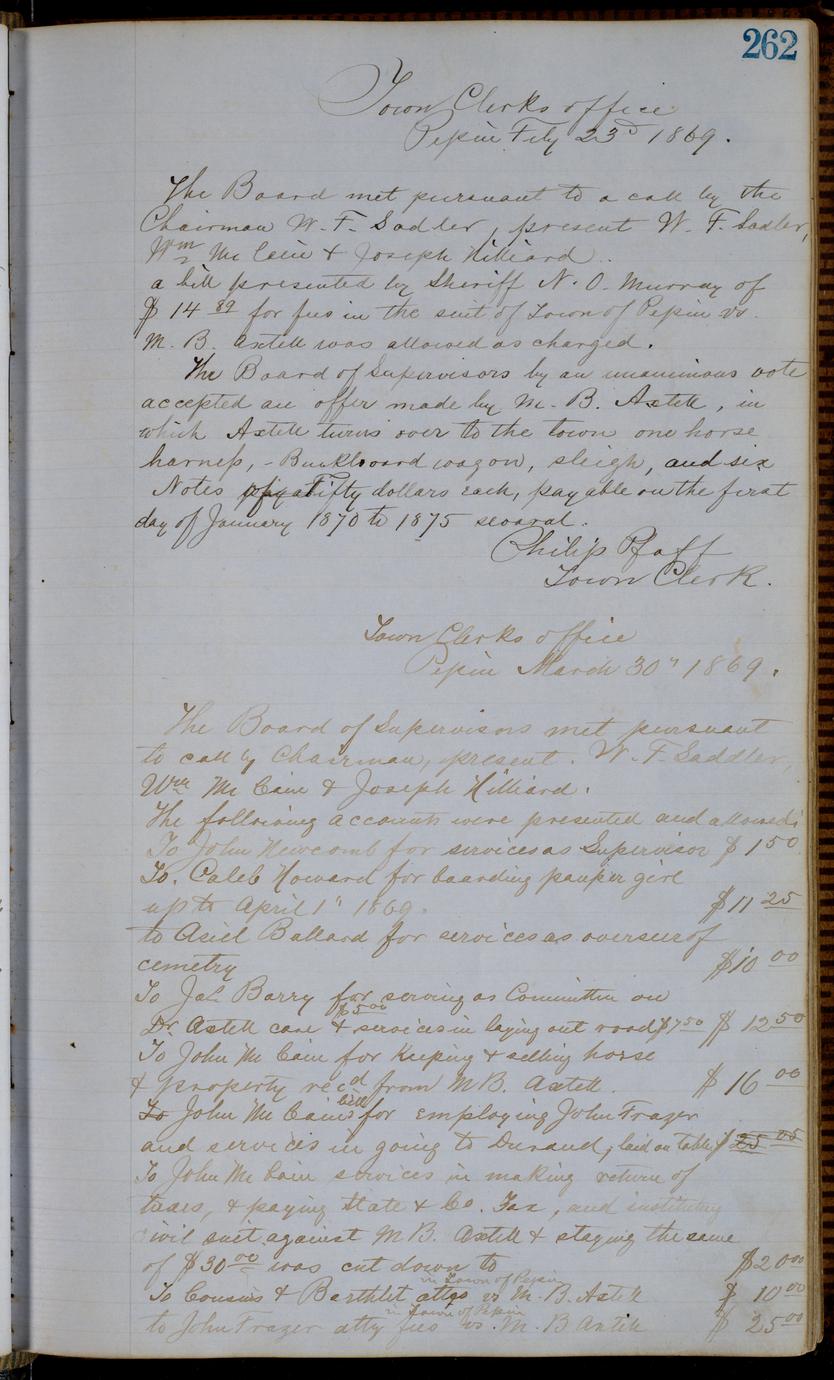 262
Town Clerks office
Pepin Feby 23d 1869.
The Board met pursuant to a call by the
Chairman W. F. Sadler, present W. F. Sadler,
Wm Mc Cain & Joseph Hilliard.
a bill presented by Sheriff N. O. Murray of
$ 14 89 for fees in the suit of Town of Pepin vs.
M. B. Axtell was allowed as charged.
The Board of Supervisors by an unanimous vote
accepted an offer made by M. B. Axtell, in
which Axtell turns over to the town one horse
harness, - Buckboard wagon, sleigh, and six
Notes Fifty dollars each, payable on the first
day of January 1870 to 1875
Philip Pfaff
Town Clerk.
Town Clerks office
Pepin March 30" 1869.
The Board of Supervisors met pursuant
to call by Chairman, present. W. F. Saddler,
Wm Mc Cain & Joseph Hilliard.
The following accounts were presented and allowed:
To John Newcomb for services as Supervisor $ 1 50
To. Caleb Howard for boarding pauper girl
up to April 1" 1869. $ 11 25
to Asiel Ballard for services as overseer of
cemetry $ 10 00
To Jas. Barry for serving as Committee on
Dr. Axtell case $5.00 & services in laying out road $7 50 $ 12 50
To John Mc Cain for Keeping & selling horse
& property recd from M B. Axtell. $ 16 00
To John Mc Cains bill for employing John Frazer
and services in going to Durand, laid on table $ 25 05
To John Mc Cain services in making return of
taxes, & paying State & Co. Tax, and instituting
civil suit against M B. Axtell & staying the same
of $30 00 was cut down to $20 00
To Cousins & Barthlet attys in Town of Pepin vs M. B. Axtell $ 10 00
to John Frazer atty fees in Town of Pepin vs. M. B Axtell $ 25 00